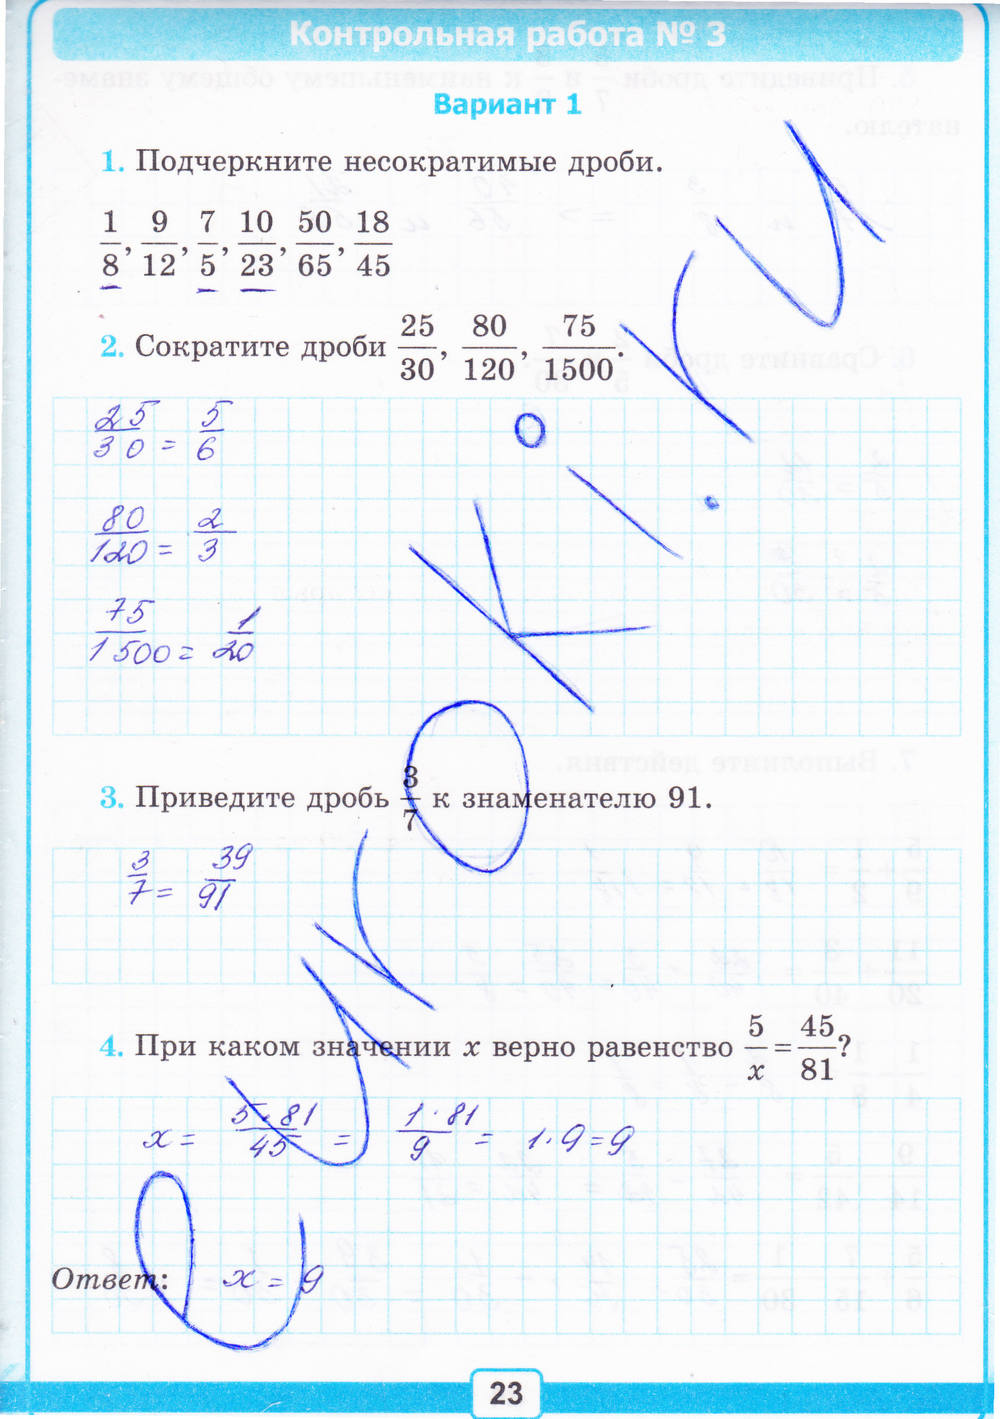 Контрольная работа № 3
Вариант 1
1. Подчеркните несократимые дроби.
1/8, 9/12, 7/5, 10/23, 50/65, 18/45
2. Сократите дроби 25/30, 80/120, 75/1500.
25/30 = 5/6
80/120 = 2/3
75/1500 = 1/20
3. Приведите дробь 3/7 к знаменателю 91.
3/7 = 39/91
4. При каком значении x верно равенство 5/x = 45/81?
x = 5·81/45 = 1·81/9 = 1·9=9
Ответ: x = 9
23